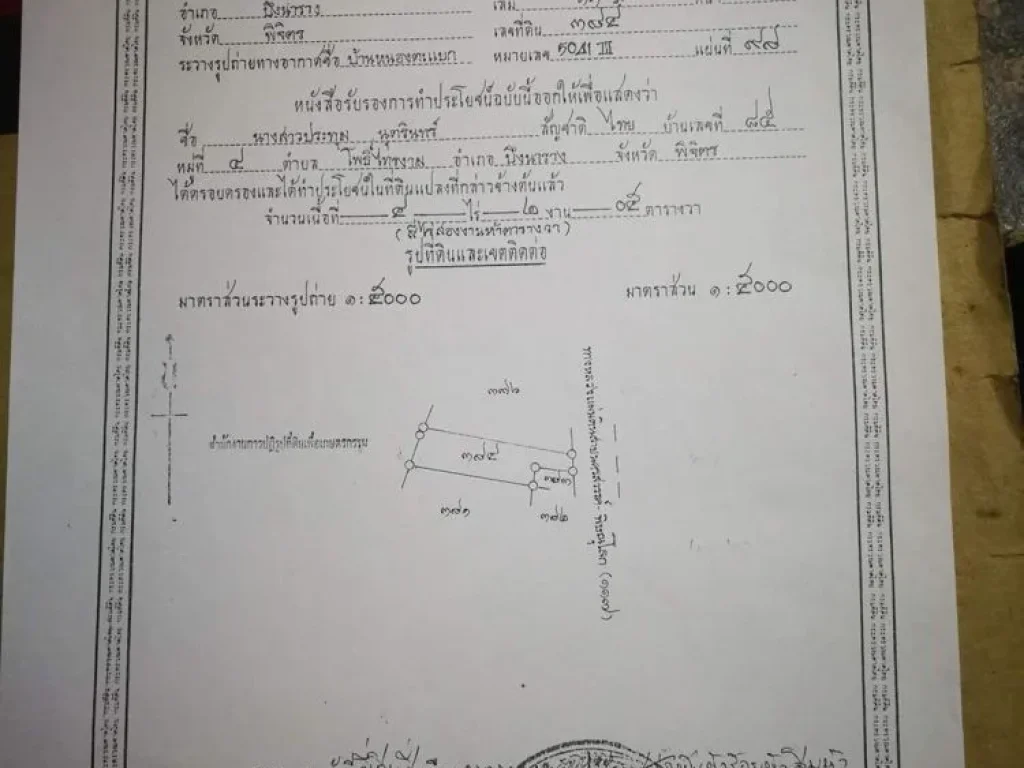 อำเภอ บึงนาราง เล่ม
จังหวัด พิจิตร เลขที่ดิน ๓๙๔
ระวางรูปถ่ายทางอากาศชื่อ บ้านหนองตะแบก หมายเลข 5041 III แผ่นที่ ๙๘
หนังสือรับรองการทำประโยชน์ฉบับนี้ออกให้เพื่อแสดงว่า
ชื่อ นางสาวประทุม นุตรินทร์ สัญชาติ ไทย บ้านเลขที่ ๘๕
หมู่ที่ ๔ ตำบล โพธิ์ไทรงาม อำเภอ บึงนาราง จังหวัด พิจิตร
ได้ครอบครองและได้ทำประโยชน์ในที่ดินแปลงที่กล่าวข้างต้นแล้ว
จำนวนเนื้อที่ ๔ ไร่ ๒ งาน ๐๕ ตารางวา
(สี่ไร่สองงานห้าตารางวา)
รูปที่ดินและเขตติดต่อ
มาตราส่วนระวางรูปถ่าย ๑ : ๕๐๐๐ มาตราส่วน ๑ : ๕๐๐๐
๓๗๖
สำนักงานการปฏิรูปที่ดินเพื่อเกษตรกรรม
๓๙๔
๓๘๓
๓๘๑
๓๘๒
ทางหลวงแผ่นดินสายนครสวรรค์ - พิษณุโลก (๑๑๗)